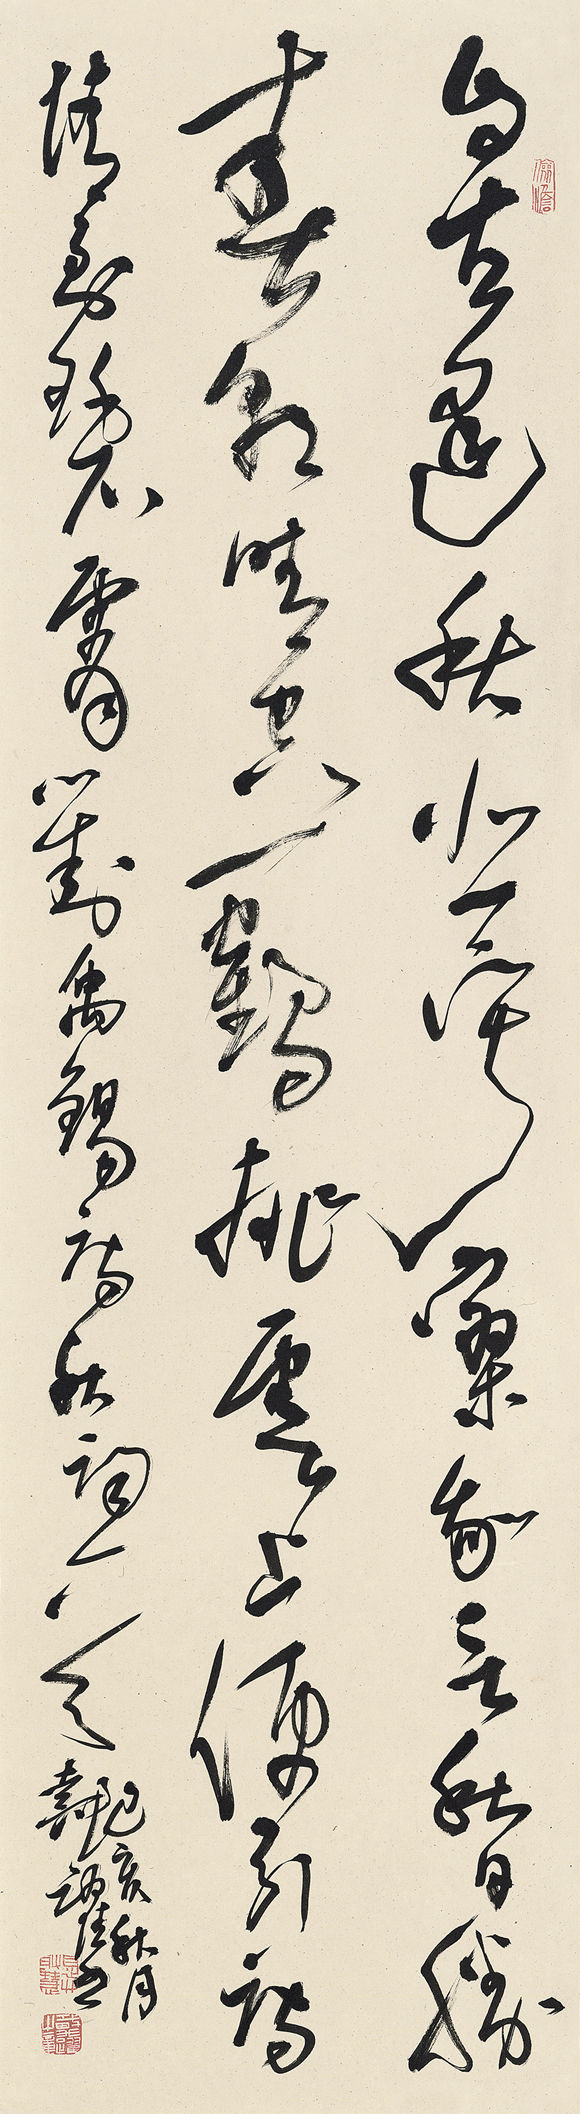 自古逢秋悲寂寥我言秋日勝
春朝晴空一鶴排雲上便引詩
情到碧霄劉禹錫詩秋詞一首
己亥秋月